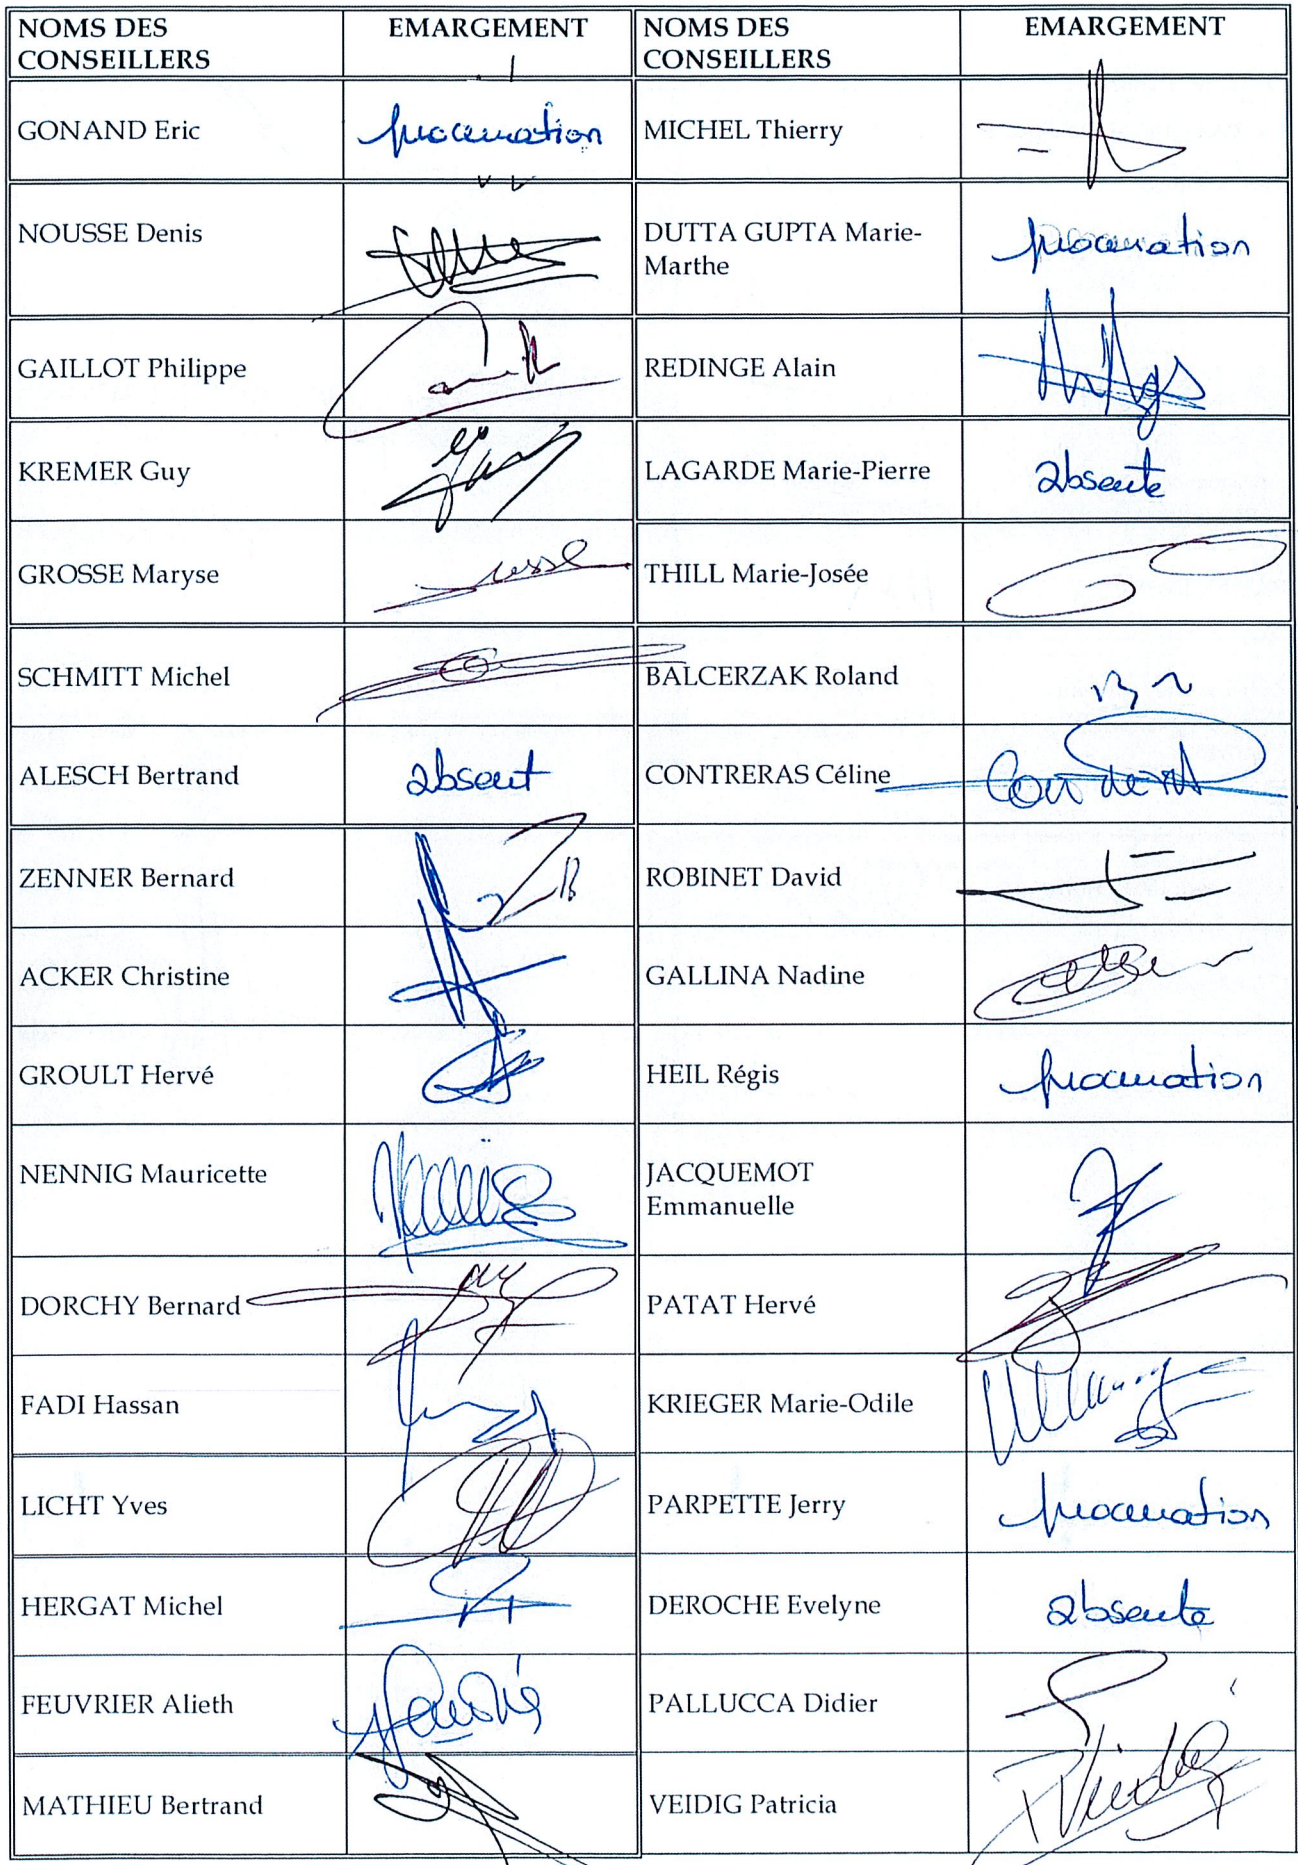 NOMS DES CONSEILLERS EMARGEMENT NOMS DES CONSEILLERS EMARGEMENT
GONAND Eric procuration MICHEL Thierry
NOUSSE Denis DUTTA GUPTA Marie-Marthe procuration
GAILLOT Philippe REDINGE Alain
KREMER Guy LAGARDE Marie-Pierre absente
GROSSE Maryse THILL Marie-Josée
SCHMITT Michel BALCERZAK Roland
ALESCH Bertrand absent CONTRERAS Céline
ZENNER Bernard ROBINET David
ACKER Christine GALLINA Nadine
GROULT Hervé HEIL Régis procuration
NENNIG Mauricette JACQUEMOT Emmanuelle
DORCHY Bernard PATAT Hervé
FADI Hassan KRIEGER Marie-Odile
LICHT Yves PARPETTE Jerry procuration
HERGAT Michel DEROCHE Evelyne absente
FEUVRIER Alieth PALLUCCA Didier
MATHIEU Bertrand VEIDIG Patricia